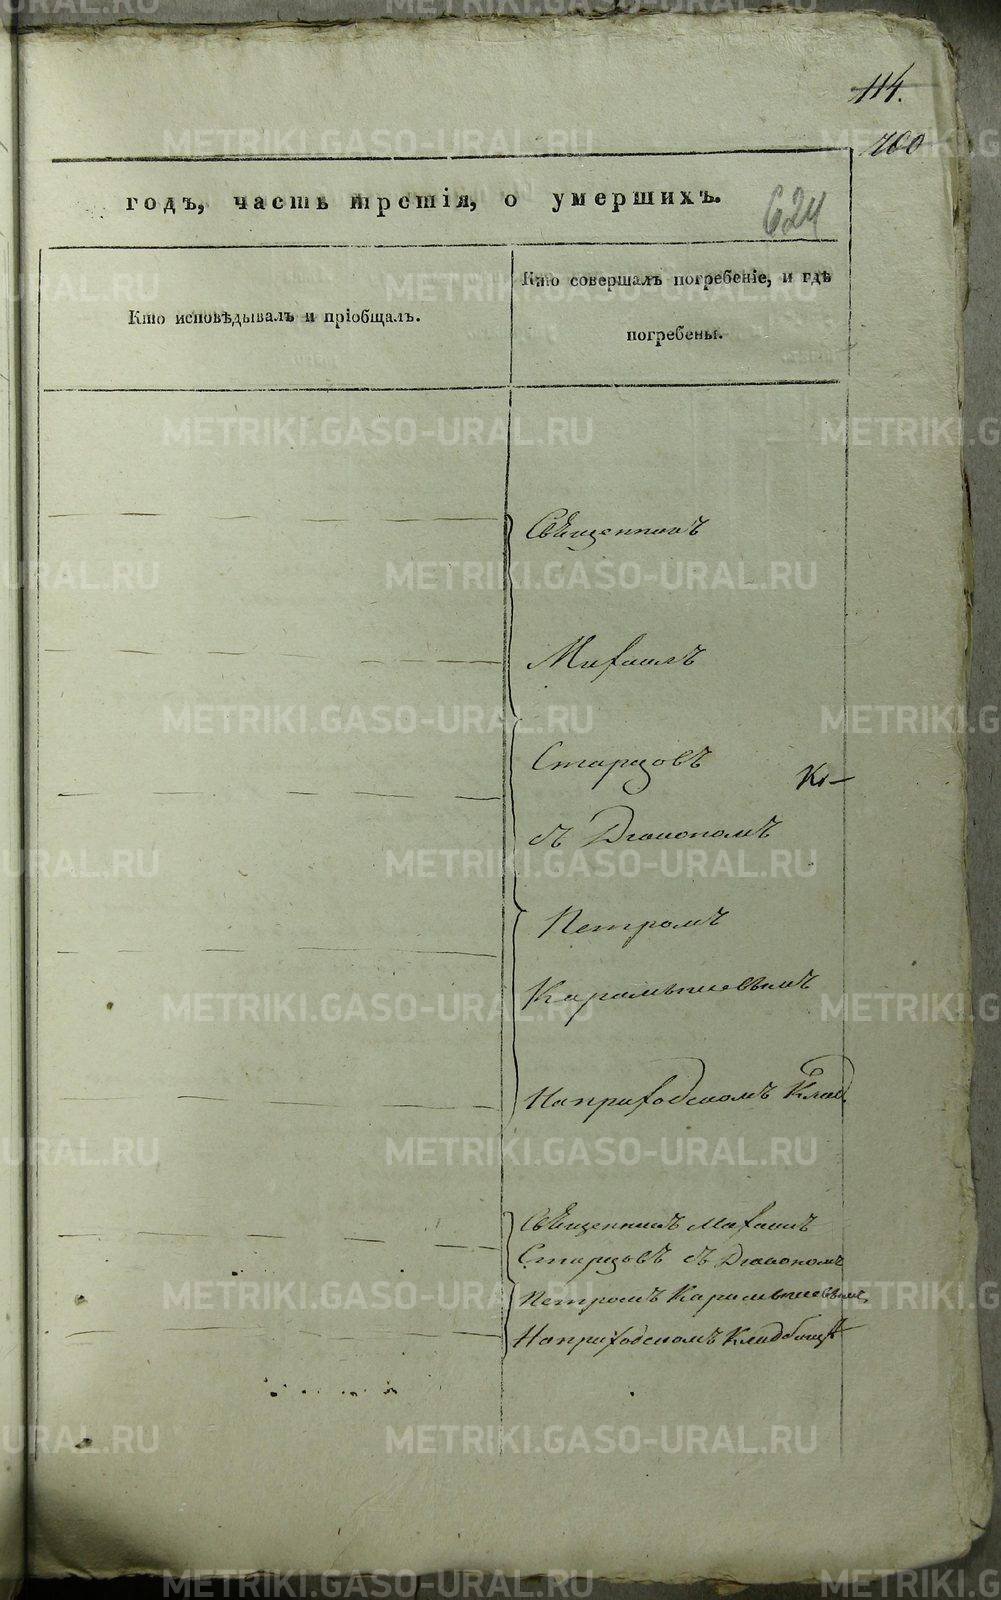 114.
760
годъ, часть третія, о умершихъ.
624
Кто исповѣдывалъ и пріобщалъ.
Кто совершалъ погребеніе, и гдѣ
погребены.
Священникъ
Михаилъ
Старцовъ
Ко-
съ Дьякономъ
Петромъ
Карамышевымъ
На приходскомъ Клад.
Священникъ Михаилъ
Старцовъ съ Дьякономъ
Петромъ Карамышевымъ,
На приходскомъ Кладбищѣ
METRIKI.GASO-URAL.RU